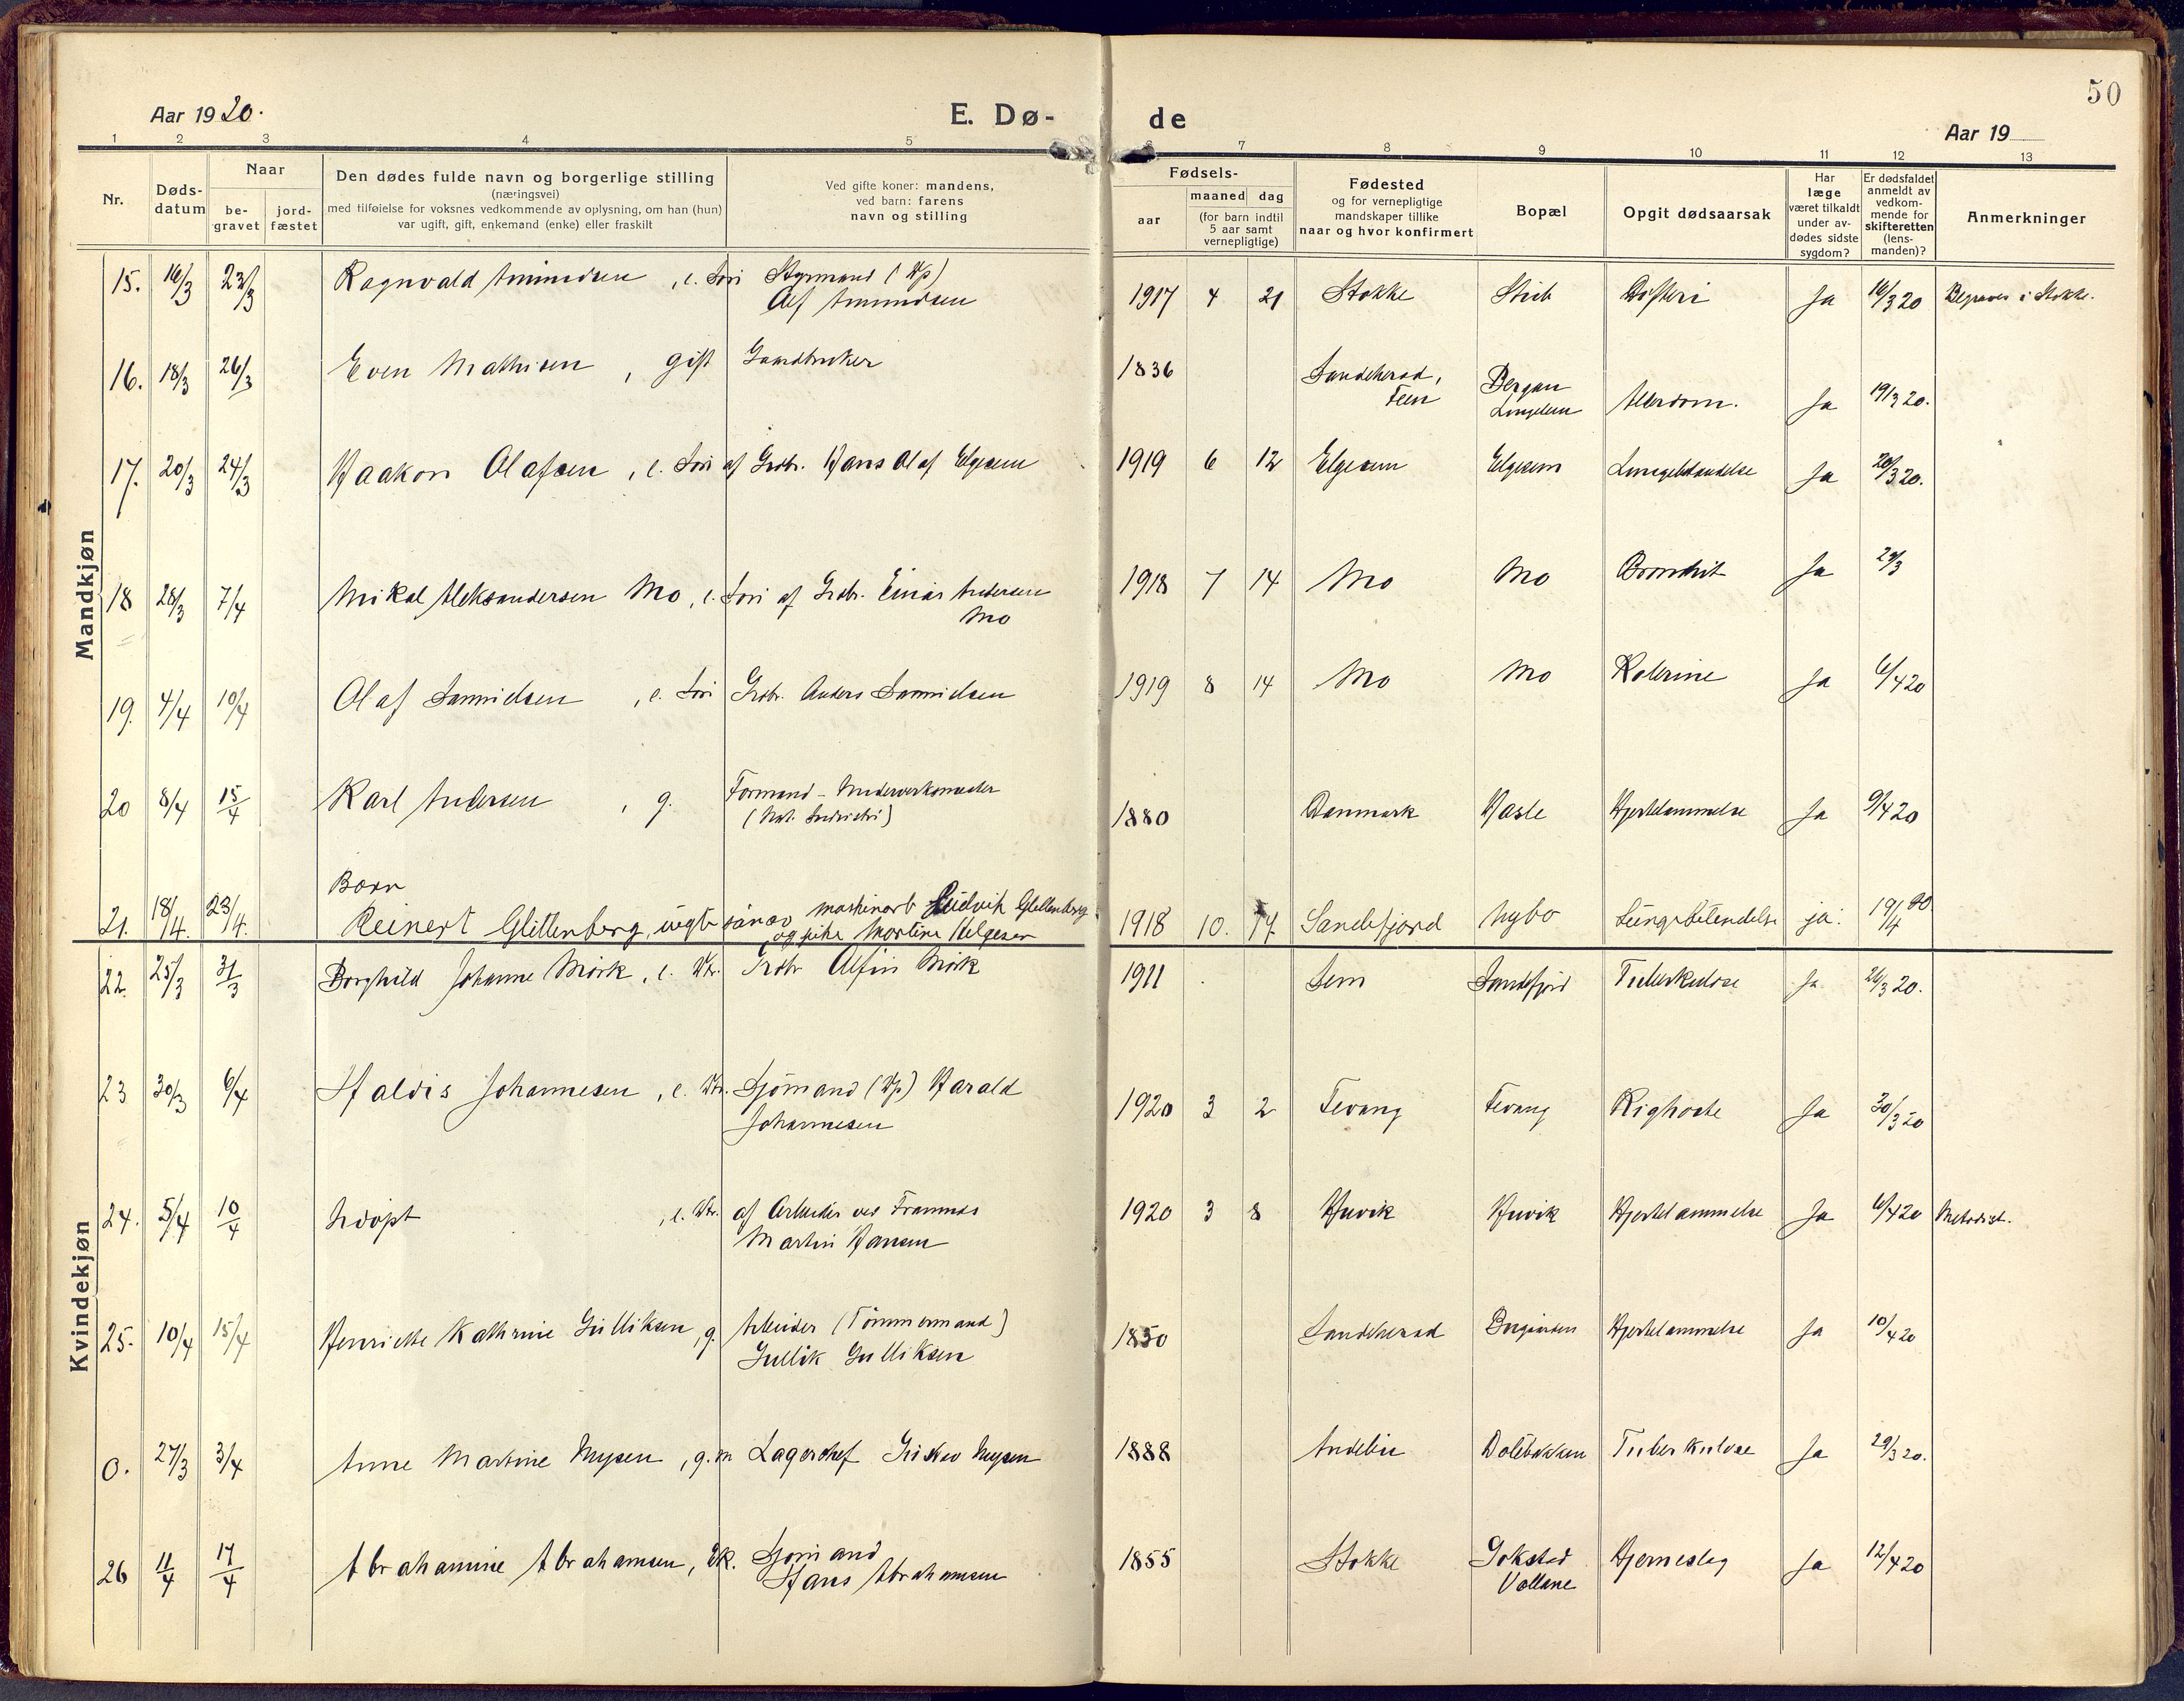 50
Aar 1920. E. Dø- de Aar 19
1 2 3 4 5 6 7 8 9 10 11 12 13
Nr.
Døds-
datum
Naar
be-
gravet
jord-
fæstet
Den dødes fulde navn og borgerlige stilling
(næringsvei)
med tilføielse for voksnes vedkommende av oplysning, om han (hun)
var ugift, gift, enkemand (enke) eller fraskilt
Ved gifte koner: mandens,
ved barn: farens
navn og stilling
Fødsels-
aar
maaned dag
(for barn indtil
5 aar samt
vernepligtige)
Fødested
og for vernepligtige
mandskaper tillike
naar og hvor konfirmert
Bopæl
Opgit dødsaarsak
Har
læge
været tilkaldt
under av-
dødes sidste
sygdom?
Er dødsfaldet
anmeldt av
vedkom-
mende for
skifteretten
(lens-
manden)?
Anmerkninger
Mandkjøn
15. 16/3 23/3 Ragnvald Amundsen, e. Søn Styrmand (Hp) 1917 4 21 Stokke Difteri Ja 16/3 20 Begraves i Stokke.
Alf Amundsen
16. 18/3 26/3 Even Mathisen, gift Gaardbruker 1836 Sandeherad, Bergan Alderdom. Ja 19/3 20.
Feen
17. 20/3 24/3 Haakon Olafsen, e. Søn af Grdbr. Hans Olaf Elgesem 1919 6 12 Elgesem Elgesem Lungebetændelse Ja 20/3 20.
18 28/3 7/4 Mikal Aleksandersen Mo, e. Søn af Grdbr. Einar Andersen 1918 7 14 Mo Mo Bronchit Ja 29/3
Mo
19. 4/4 10/4 Olaf Samuelsen, e. Søn Grdbr. Anders Samuelsen 1919 8 14 Mo Mo Kolerine Ja 6/4 20
20 8/4 15/4 Karl Andersen, g. Formand - Murerverksmester 1880 Danmark Hasle Hjertelammelse Ja 9/4 20
Barn
21. 18/4. 23/4. Reinert Glittenberg, uegte søn av maskinarb Ludvik Glittenberg 1918 10. 14 Sandefjord Nybo Lungebetendelse ja. 19/4 20
og pike Martine Helgesen
Kvindekjøn
22. 25/3 31/3 Borghild Johanne Mørk, e. Dtr. Grdbr Alfin Mørk 1911 Sem Sandefjord Tuberkulose Ja 26/3 20.
23 30/3 6/4 Haldis Johannesen, e. Dtr. Sjømand (Hp) Harald 1920 3 2 Tevang Tevang Kighoste Ja 30/3 20
Johannesen
24. 5/4 10/4 Udøpt, e. Dtr. af Arbeider ved Framnæs 1920 3 8 Huvik Huvik Hjertelammelse Ja 6/4 20 Metodist.
Martin Hansen
25. 10/4 15/4 Henriette Kathrine Gulliksen, g. Arbeider (Tømmermand) 1850 Sandeherad Hjertelammelse Ja 10/4 20
Gullik Gulliksen
0. 27/3 3/4 Anne Martine Mysen, g. m Lagerchef Mysen 1888 Andebu Dølebakken Tuberkulose Ja 29/3 20.
26 11/4 17/4 Abrahamine Abrahamsen, Ek. Sjømand 1855 Stokke Gokstad Hjerneslag Ja 12/4 20
Hans Abrahamsen Vollane